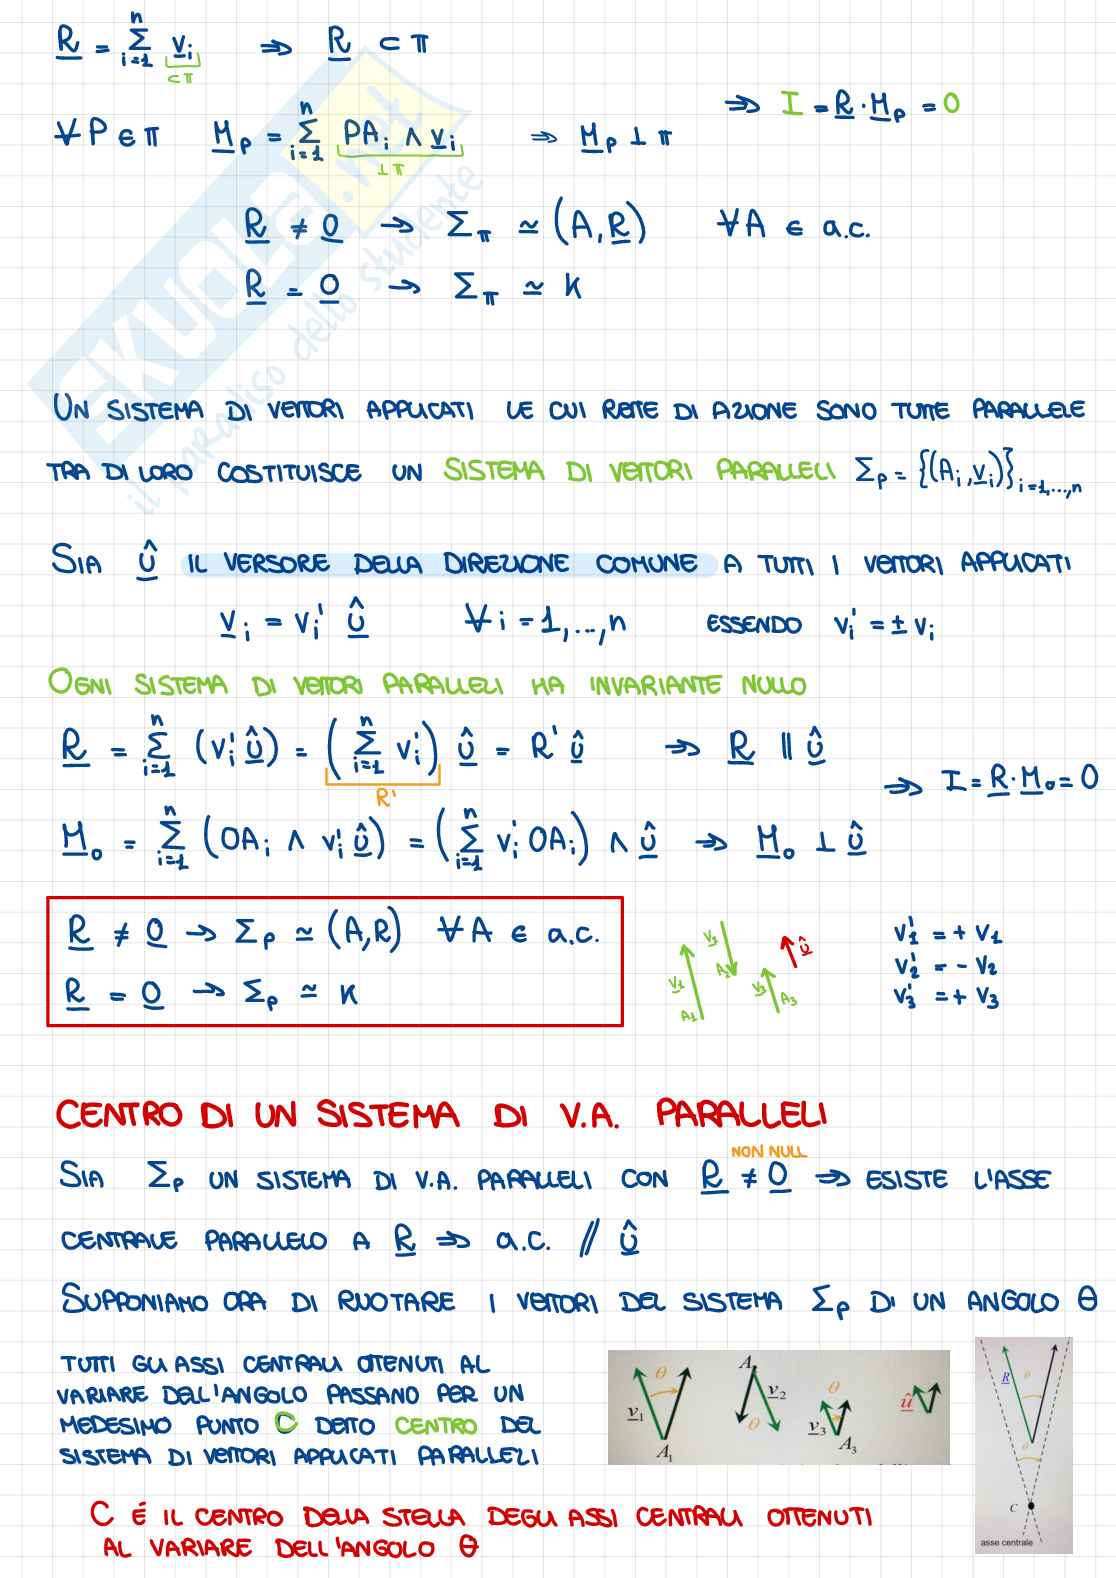 R = Σ_{i=1}^{n} v_i ⇒ R ⊂ π
⊂ π
⇒ I = R · M_P = 0
∀ P ∈ π M_P = Σ_{i=1}^{n} PA_i ∧ v_i ⇒ M_P ⊥ π
⊥ π
R ≠ 0 → Σ_π ≃ (A, R) ∀ A ∈ a.c.
R = 0 → Σ_π ≃ K
SKUOLA.net
il paradiso dello studente
UN SISTEMA DI VETTORI APPLICATI LE CUI RETTE DI AZIONE SONO TUTTE PARALLELE
TRA DI LORO COSTITUISCE UN SISTEMA DI VETTORI PARALLELI Σ_P = {(A_i, v_i)}_{i=1,...,n}
SIA û IL VERSORE DELLA DIREZIONE COMUNE A TUTTI I VETTORI APPLICATI
v_i = v_i' û ∀ i = 1,...,n ESSENDO v_i' = ± v_i
OGNI SISTEMA DI VETTORI PARALLELI HA INVARIANTE NULLO
R = Σ_{i=1}^{n} (v_i' û) = (Σ_{i=1}^{n} v_i') û = R' û ⇒ R ∥ û
R'
⇒ I = R · M_o = 0
M_o = Σ_{i=1}^{n} (OA_i ∧ v_i' û) = (Σ_{i=1}^{n} v_i' OA_i) ∧ û ⇒ M_o ⊥ û
R ≠ 0 → Σ_P ≃ (A, R) ∀ A ∈ a.c.
R = 0 → Σ_P ≃ K
v_1 A_1
A_2
v_3 A_3
û
v_1' = + v_1
v_2' = - v_2
v_3' = + v_3
CENTRO DI UN SISTEMA DI V.A. PARALLELI
NON NULL
SIA Σ_P UN SISTEMA DI V.A. PARALLELI CON R ≠ 0 ⇒ ESISTE L'ASSE
CENTRALE PARALLELO A R ⇒ a.c. // û
SUPPONIAMO ORA DI RUOTARE I VETTORI DEL SISTEMA Σ_P DI UN ANGOLO θ
TUTTI GLI ASSI CENTRALI OTTENUTI AL
VARIARE DELL'ANGOLO PASSANO PER UN
MEDESIMO PUNTO C DETTO CENTRO DEL
SISTEMA DI VETTORI APPLICATI PARALLELI
θ v_1 A_1
A v_2 θ
θ v_3 A_3
û
R θ
θ
C
asse centrale
C É IL CENTRO DELLA STELLA DEGLI ASSI CENTRALI OTTENUTI
AL VARIARE DELL'ANGOLO θ